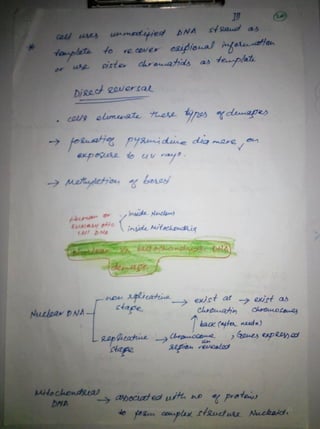 III
* Cell uses unmodified DNA strand as
template to recover original information
or use sister chromatids as template
Direct reversal
. cells eliminate these types of damages
→ formation of pyrimidine diamers, on
exposure to UV rays.
→ Methyletion of bases
Human or
Eukaryotic
cell DNA
inside Nucleus
inside Mitochondria
Nuclear vs Mitochondrial DNA
damage
Nuclear DNA
non replicative → exist as → exist as
stage chromatin chromosomes
replicative → chromosome , Genes expressed
stage region revealed
Mitochondrial → associated with no of proteins
DNA
to form complex structure Nucleoid.